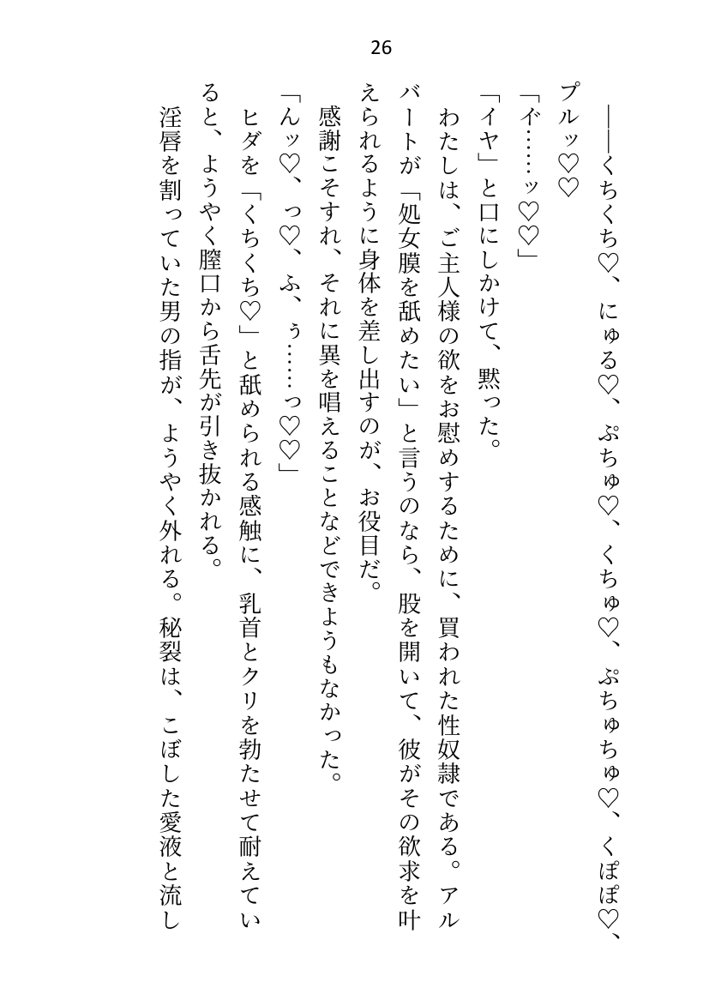 26
――くちくち♡、にゅる♡、ぷちゅ♡、くちゅ♡、ぷちゅちゅ♡、くぽぽ♡、
プルッ♡♡
「イ゛……ッ♡♡」
「イヤ」と口にしかけて、黙った。
わたしは、ご主人様の欲をお慰めするために、買われた性奴隷である。アル
バートが「処女膜を舐めたい」と言うのなら、股を開いて、彼がその欲求を叶
えられるように身体を差し出すのが、お役目だ。
感謝こそすれ、それに異を唱えることなどできようもなかった。
「んッ♡、っ♡、ふ、ぅ……っ♡♡」
ヒダを「くちくち♡」と舐められる感触に、乳首とクリを勃たせて耐えてい
ると、ようやく膣口から舌先が引き抜かれる。
淫唇を割っていた男の指が、ようやく外れる。秘裂は、こぼした愛液と流し